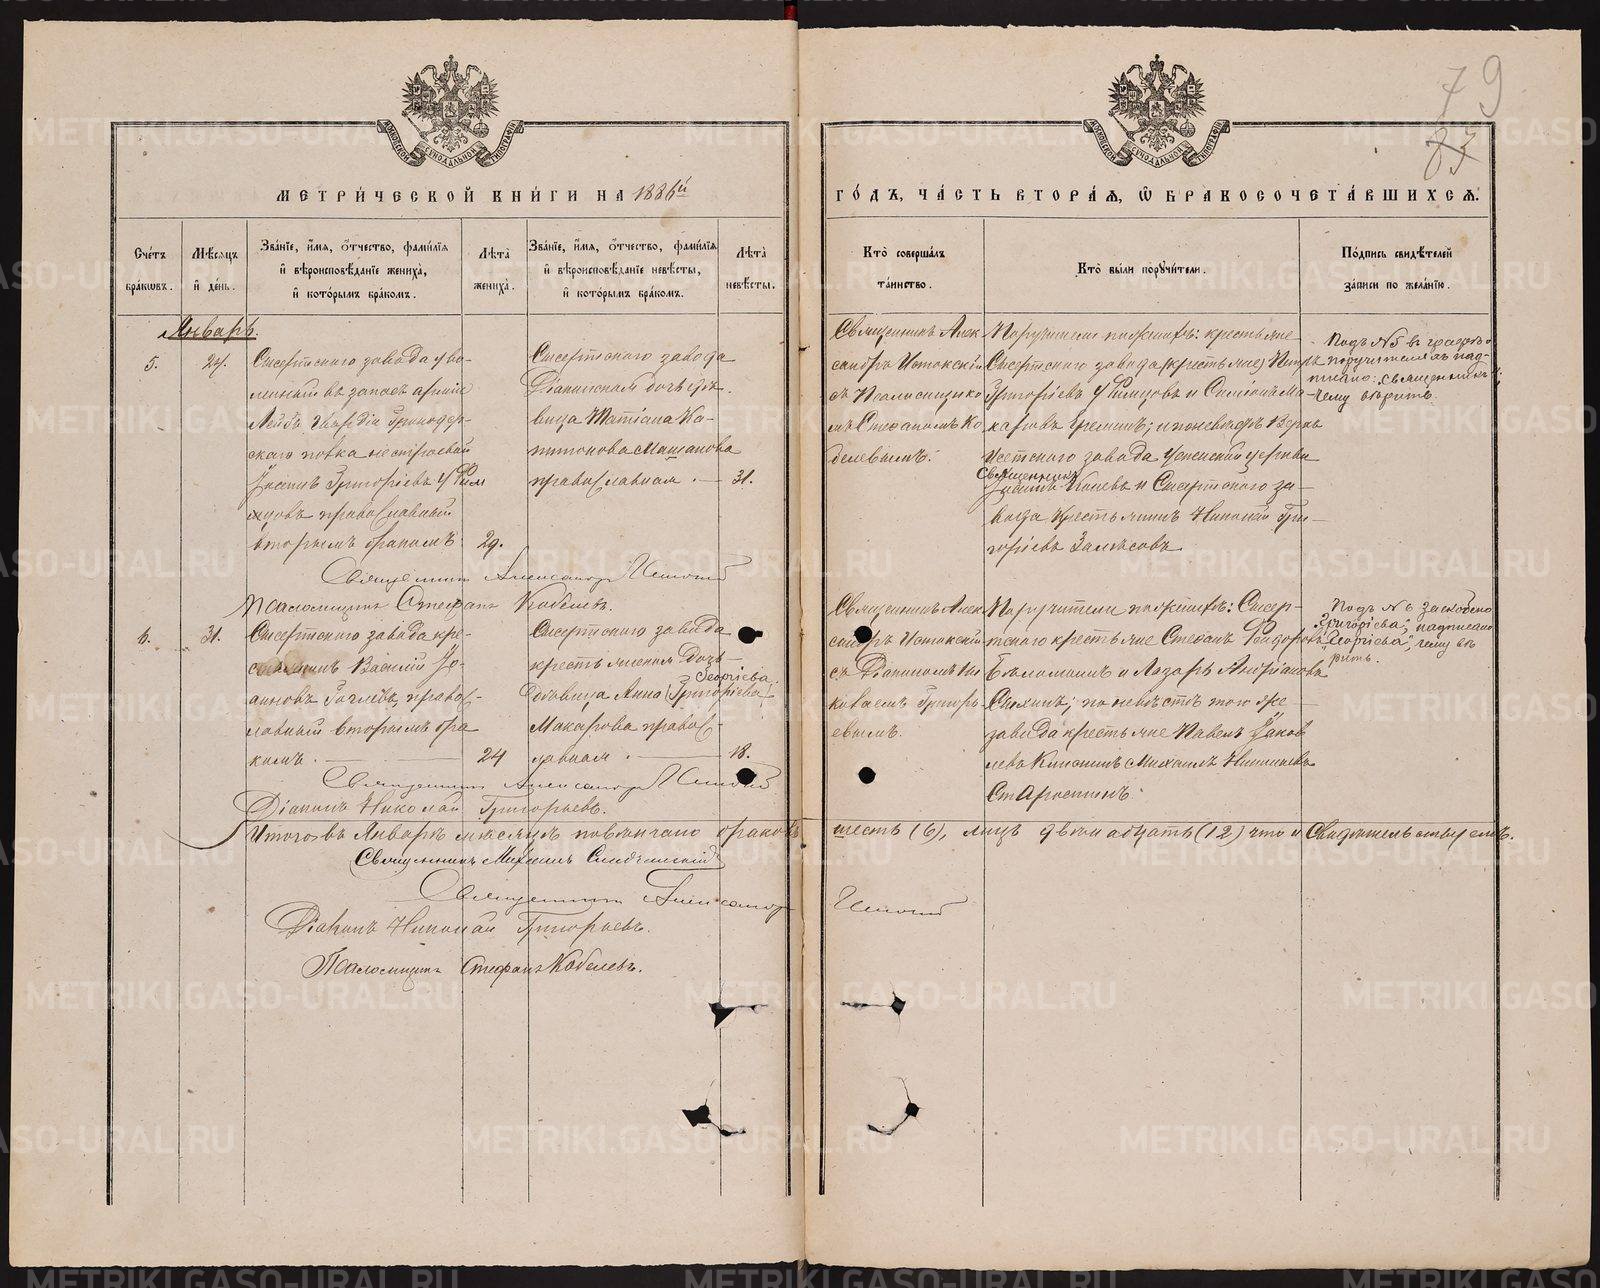 79
83
МЕТРИ́ЧЕСКОЙ КНИ́ГИ НА 1886й
ГО́ДЪ, ЧА́СТЬ ВТОРА́Я, Ѡ БРАКОСОЧЕТА́ВШИХСЯ.
Сче́тъ бра́кѡвъ.
Мѣ́сяцъ и де́нь.
Зва́нїе, и́мя, о́тчество, фами́лїя и вѣроисповѣ́данїе жениха́, и кото́рымъ бра́комъ.
Лѣта̀ жениха̀.
Зва́нїе, и́мя, о́тчество, фами́лїя и вѣроисповѣ́данїе невѣ́сты, и кото́рымъ бра́комъ.
Лѣта̀ невѣ́сты.
Кто̀ соверша́лъ та́инство.
Кто̀ бы́ли поручи́тели.
По́дпись свидѣ́телей за́писи по жела́нїю.
Январь.
5.
24.
Сысертскаго завода уво-
ленный въ запасъ арміи
Лейбъ Гвардіи Гренадер-
скаго полка нестроевой
Григорьевъ
православный
вторымъ бракомъ
29.
Сысертскаго завода
дочь дѣ-
вица Татіана Ка-
питонова
православная.
31.
Священникъ Алек-
сандръ Истокскій
съ Псаломщико-
мъ Стефаномъ Ко-
белевымъ.
Поручители по женихѣ: крестьяне
Сысертскаго завода крестьяне Петръ
Григорьевъ и Симіонъ Ма-
каровъ; по невѣстѣ Верхъ
Исетскаго завода Успенской церкви
Священникъ
и Сысертскаго за-
вода Крестьянинъ Николай Гри-
горьевъ
Подъ №5 въ графѣ о
поручителяхъ над-
писано: „священникъ“,
чему вѣрить.
Священникъ Александръ Истокскій
Псаломщикъ Стефанъ Кобелевъ.
6.
31.
Сысертскаго завода кре-
стьянинъ Василій Іо-
анновъ право-
славный вторымъ бра-
комъ.
24
Сысертскаго завода
крестьянская дочь
Георгіева
дѣвица Анна (Григорьева)
Макарова право-
славная
18.
Священникъ Алек-
сандръ Истокскій
съ Діакономъ Ни-
колаемъ Григорь-
евымъ.
Поручители по женихѣ: Сысер-
тскаго крестьяне Стефанъ Феодоровъ
и Лазарь Андріановъ
по невѣстѣ того же
завода крестьяне Павелъ Іаков-
левъ и Михаилъ
Подъ № 6 заскоблено
„Григорьева“, надписано
„Георгіева“, чему вѣ-
рить.
Священникъ Александръ Истокскій
Діаконъ Николай Григорьевъ.
Итого въ Январѣ мѣсяцѣ повѣнчано браковъ шесть (6), лицъ двѣнадцать (12) что и Свидѣтельствуемъ.
Священникъ Михаилъ
Священникъ Александръ Истокскій
Діаконъ Николай Григорьевъ.
Псаломщикъ Стефанъ Кобелевъ.
METRIKI.GASO-URAL.RU